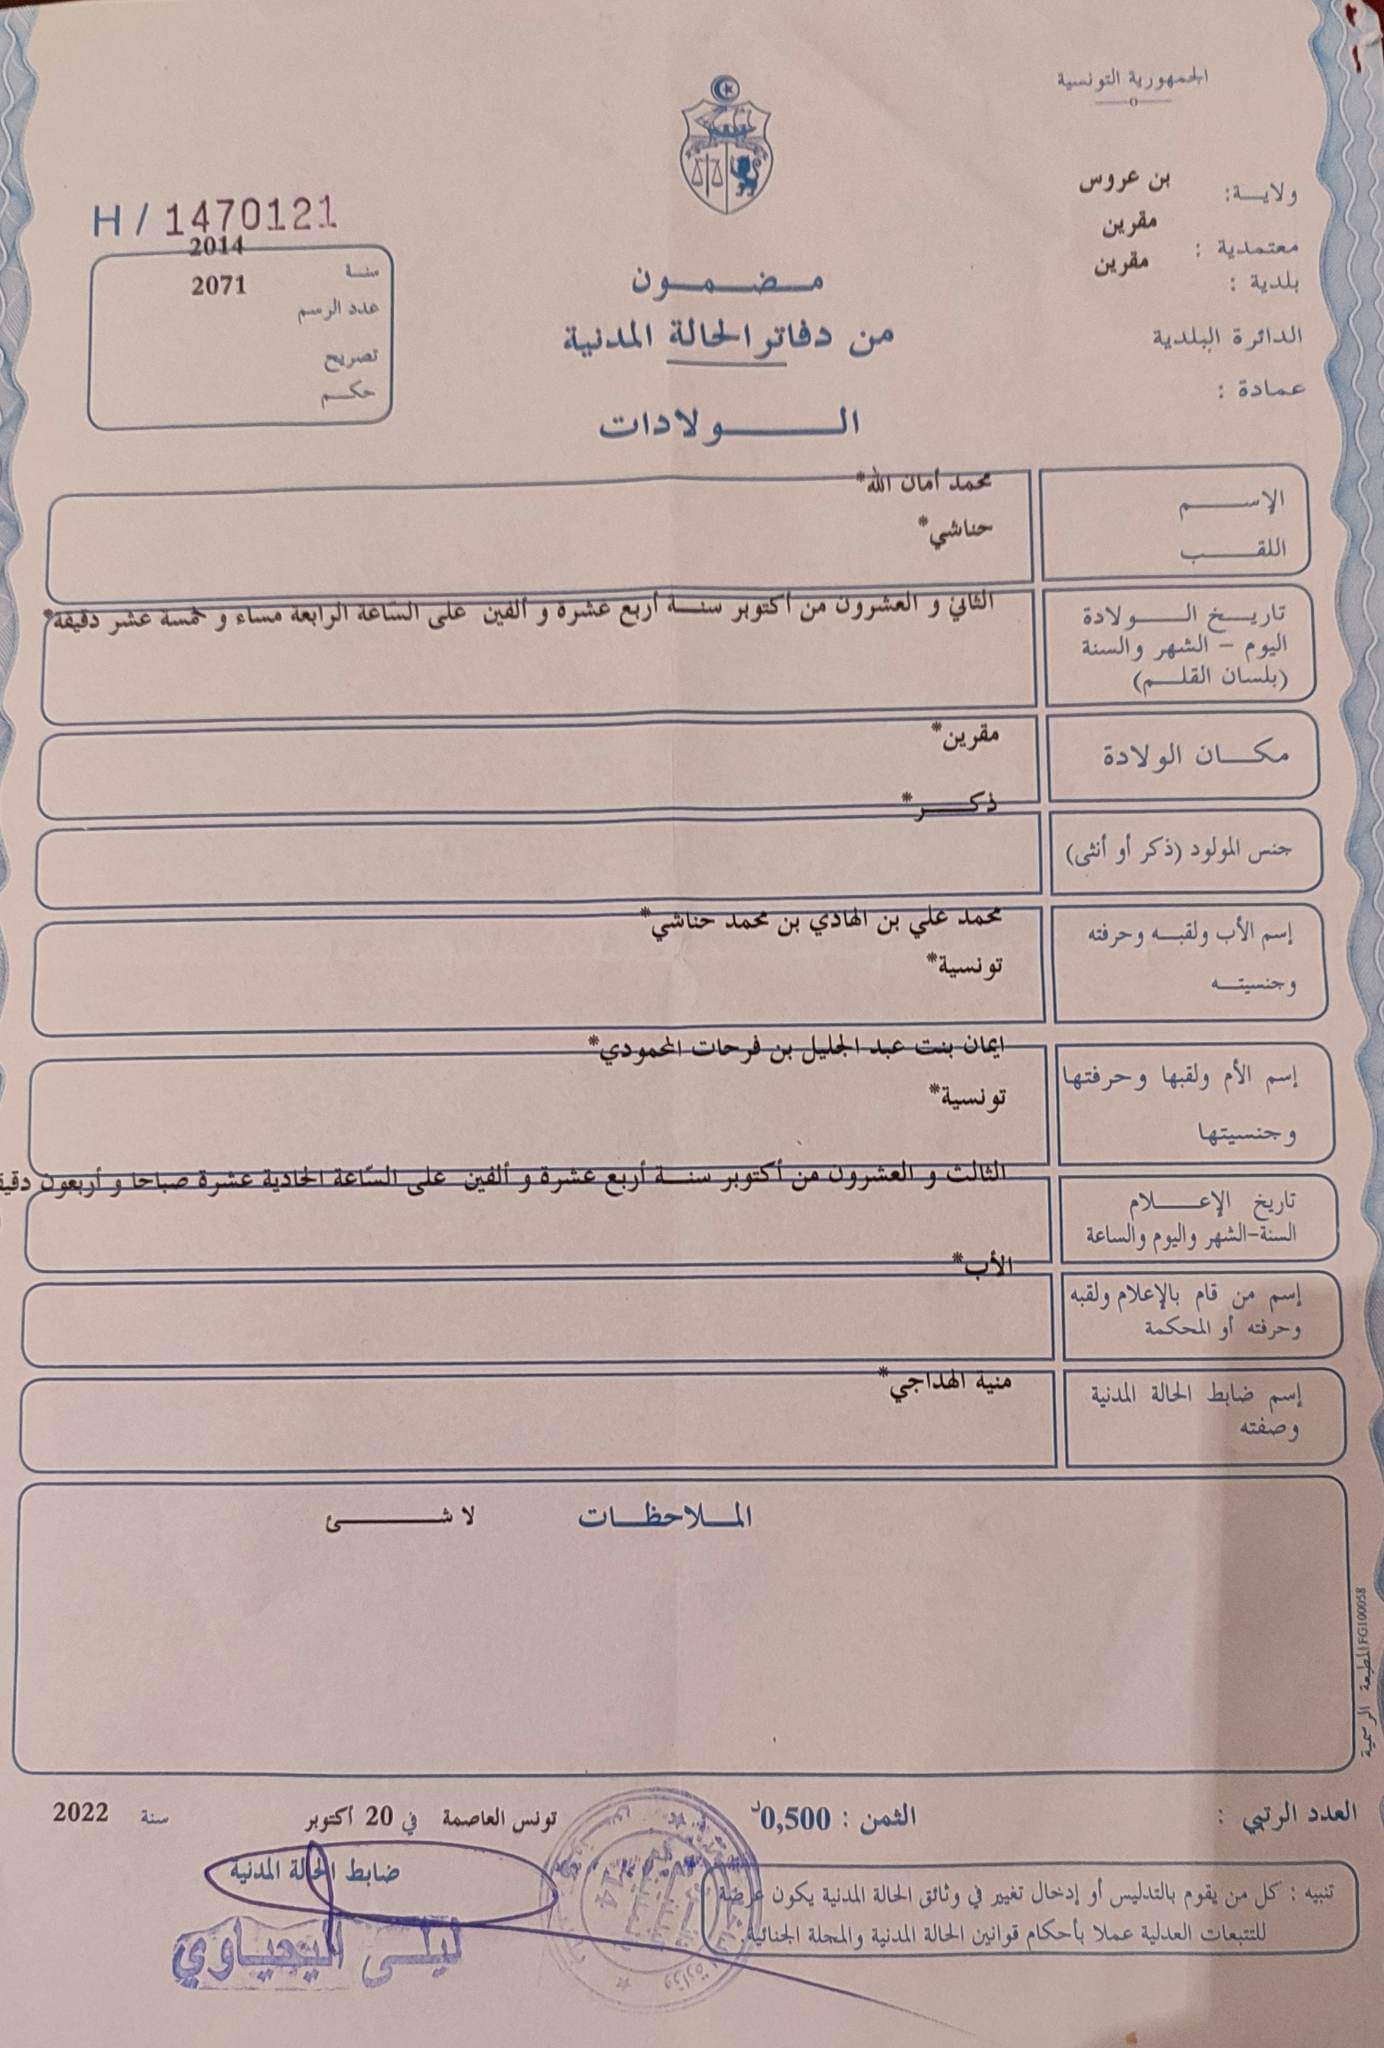 الجمهورية التونسية
ولايـــة: بن عروس
معتمدية : مقرين
بلدية : مقرين
الدائرة البلدية
عمادة :
H / 1470121
سنـة 2014
عدد الرسم 2071
تصريح
حكـــم
مـــضـــمـــون
من دفاتر الحالة المدنية
الـــــــولادات
الإســـــم محمد أمان الله*
اللقـــــب حناشي*
تاريـــخ الـــــولادة الثاني و العشرون من أكتوبر سنــة أربع عشرة و ألفين على السّاعة الرابعة مساء و خمسة عشر دقيقة*
اليوم – الشهر والسنة
(بلسان القلـــم)
مكـــان الولادة مقرين*
جنس المولود (ذكر أو أنثى) ذكــــر*
إسم الأب ولقبــه وحرفته محمد علي بن الهادي بن محمد حناشي*
وجنسيتــه تونسية*
إسم الأم ولقبها وحرفتها ايمان بنت عبد الجليل بن فرحات المحمودي*
وجنسيتها تونسية*
تاريخ الإعـــــلام الثالث و العشرون من أكتوبر سنــة أربع عشرة و ألفين على السّاعة الحادية عشرة صباحا و أربعون
السنة-الشهر واليوم والساعة
إسم من قام بالإعلام ولقبه الأب*
وحرفته أو المحكمة
إسم ضابط الحالة المدنية منية الهداجي*
وصفته
المــلاحظــات لا شـــــــئ
المطبعة الرسمية FG100058
العدد الرتبي : الثمن : 0,500د تونس العاصمة في 20 أكتوبر سنة 2022
ضابط الحالة المدنية
ليلى اليحياوي
تنبيه : كل من يقوم بالتدليس أو إدخال تغيير في وثائق الحالة المدنية يكون عرضة
للتتبعات العدلية عملا بأحكام قوانين الحالة المدنية والمجلة الجنائية.